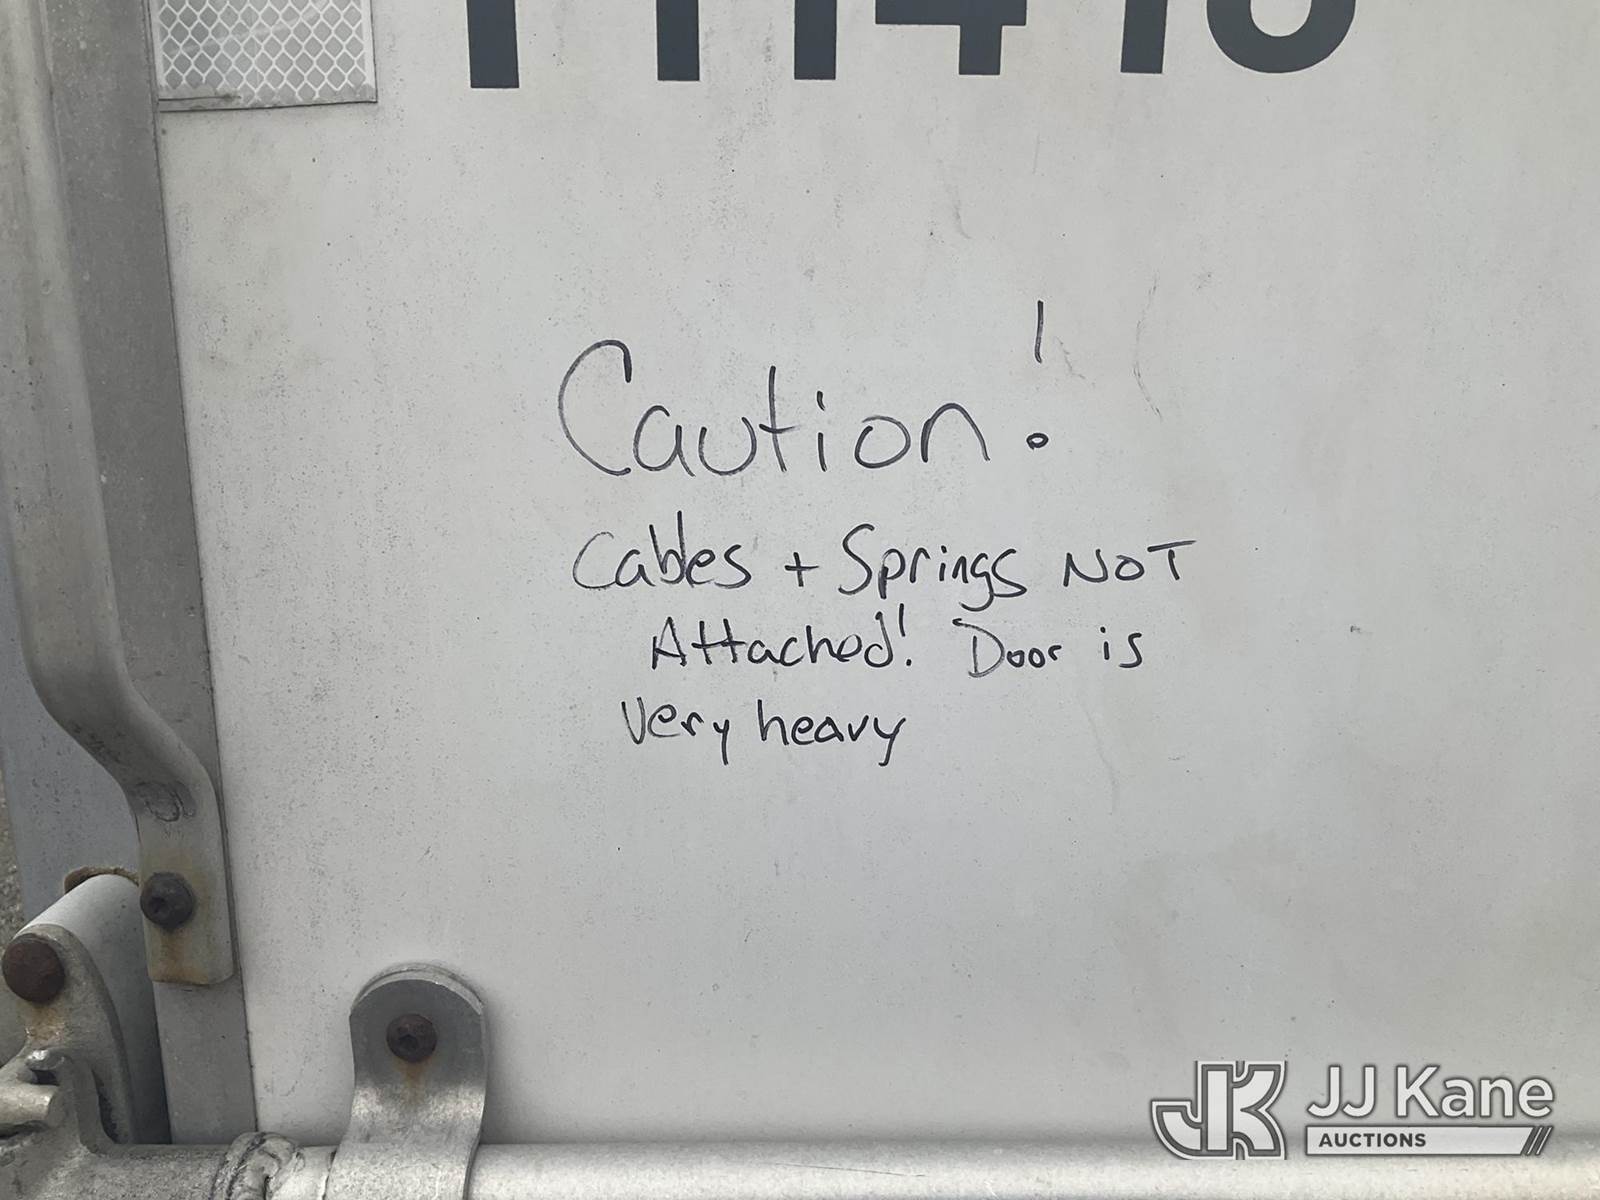 Caution!
Cables + Springs NOT
Attached! Door is
Very heavy
JJ Kane
AUCTIONS